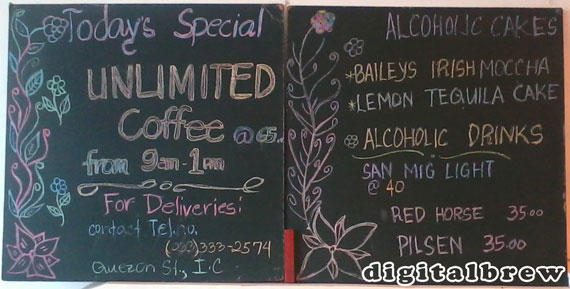 Today's Special
UNLIMITED
Coffee @ 65..
from 9am-1pm
For Deliveries:
contact Tel.no.
(033)333-2574
Quezon St., I.C
ALCOHOLIC CAKES
*BAILEYS IRISH MOCCHA
*LEMON TEQUILA CAKE
ALCOHOLIC DRINKS
SAN MIG LIGHT
@ 40
RED HORSE 35.00
PILSEN 35.00
digitalbrew